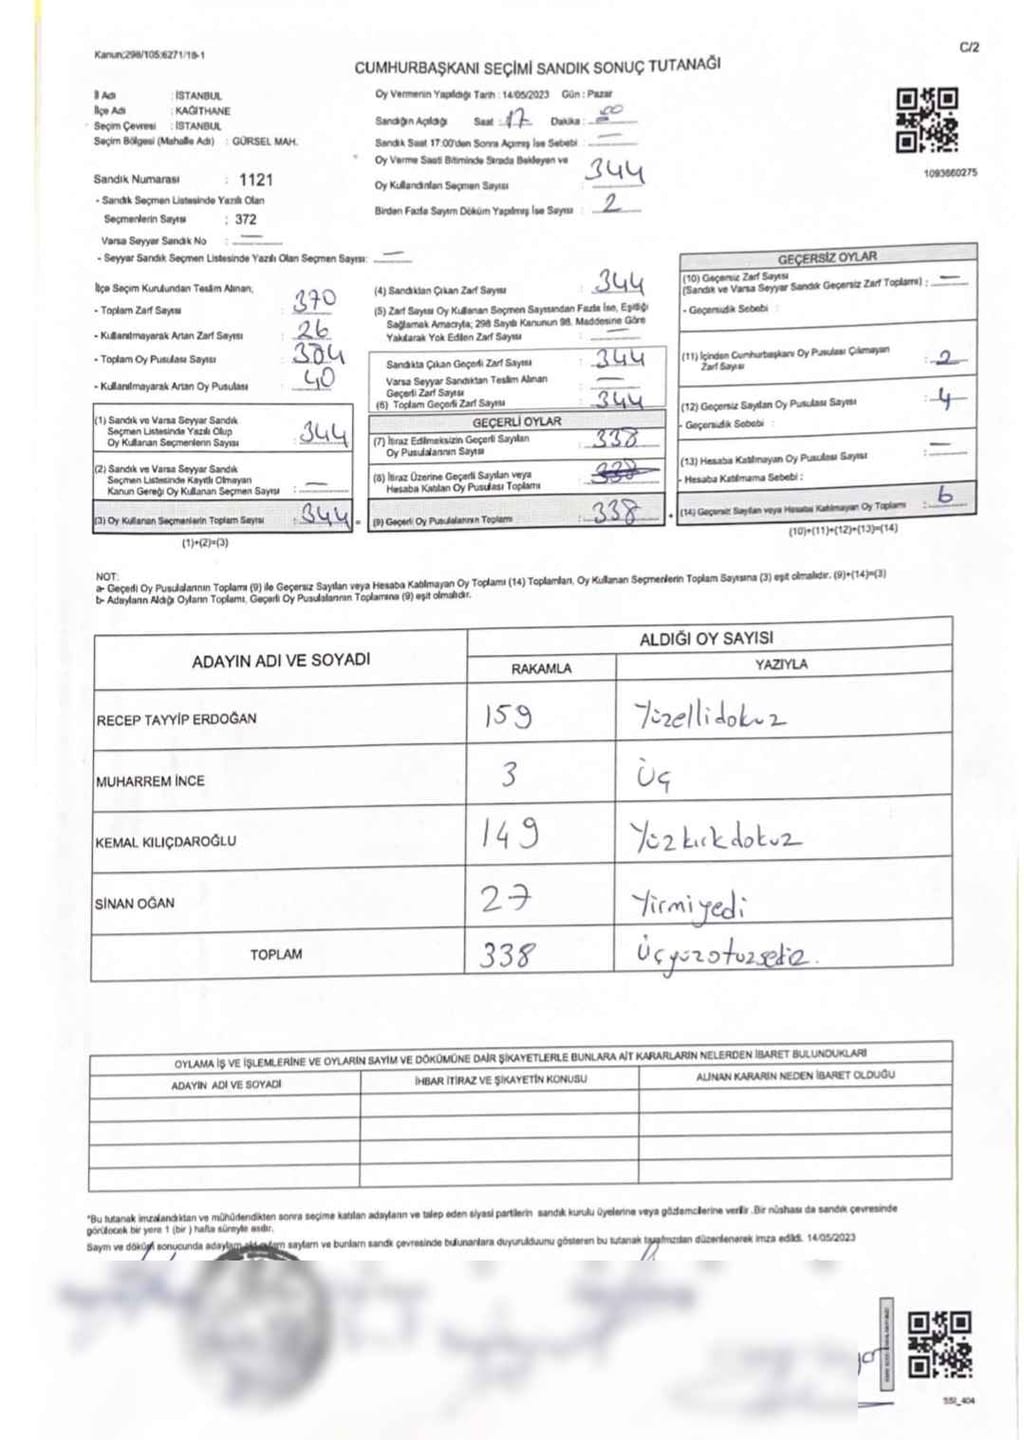 Kanun:298/105;6271/18-1
C/2
CUMHURBAŞKANI SEÇİMİ SANDIK SONUÇ TUTANAĞI
İl Adı : İSTANBUL
İlçe Adı : KAĞITHANE
Seçim Çevresi : İSTANBUL
Seçim Bölgesi (Mahalle Adı) : GÜRSEL MAH.
Oy Vermenin Yapıldığı Tarih : 14/05/2023 Gün : Pazar
Sandığın Açıldığı Saat : 17 Dakika : 00
Sandık Saat 17:00'den Sonra Açımış İse Sebebi : —
Oy Verme Saati Bitiminde Sırada Bekleyen ve
Oy Kullandırılan Seçmen Sayısı : 344
Birden Fazla Sayım Döküm Yapılmış İse Sayısı : 2
1093660275
Sandık Numarası : 1121
- Sandık Seçmen Listesinde Yazılı Olan
Seçmenlerin Sayısı : 372
Varsa Seyyar Sandık No : —
- Seyyar Sandık Seçmen Listesinde Yazılı Olan Seçmen Sayısı: —
İlçe Seçim Kurulundan Teslim Alınan;
- Toplam Zarf Sayısı : 370
- Kullanılmayarak Artan Zarf Sayısı : 26
- Toplam Oy Pusulası Sayısı : 384
- Kullanılmayarak Artan Oy Pusulası : 40
(1) Sandık ve Varsa Seyyar Sandık
Seçmen Listesinde Yazılı Olup
Oy Kullanan Seçmenlerin Sayısı : 344
(2) Sandık ve Varsa Seyyar Sandık
Seçmen Listesinde Kayıtlı Olmayan
Kanun Gereği Oy Kullanan Seçmen Sayısı : —
(3) Oy Kullanan Seçmenlerin Toplam Sayısı : 344
(1)+(2)=(3)
(4) Sandıktan Çıkan Zarf Sayısı : 344
(5) Zarf Sayısı Oy Kullanan Seçmen Sayısından Fazla İse, Eşitliği
Sağlamak Amacıyla; 298 Sayılı Kanunun 98. Maddesine Göre
Yakılarak Yok Edilen Zarf Sayısı : —
Sandıkta Çıkan Geçerli Zarf Sayısı : 344
Varsa Seyyar Sandıktan Teslim Alınan
Geçerli Zarf Sayısı : —
(6) Toplam Geçerli Zarf Sayısı : 344
GEÇERLİ OYLAR
(7) İtiraz Edilmeksizin Geçerli Sayılan
Oy Pusulalarının Sayısı : 338
(8) İtiraz Üzerine Geçerli Sayılan veya
Hesaba Katılan Oy Pusulası Toplamı : 338
(9) Geçerli Oy Pusulalarının Toplamı : 338
GEÇERSİZ OYLAR
(10) Geçersiz Zarf Sayısı
(Sandık ve Varsa Seyyar Sandık Geçersiz Zarf Toplamı) : —
- Geçersizlik Sebebi :
(11) İçinden Cumhurbaşkanı Oy Pusulası Çıkmayan
Zarf Sayısı : 2
(12) Geçersiz Sayılan Oy Pusulası Sayısı : 4
- Geçersizlik Sebebi :
(13) Hesaba Katılmayan Oy Pusulası Sayısı : —
- Hesaba Katılmama Sebebi :
(14) Geçersiz Sayılan veya Hesaba Katılmayan Oy Toplamı : 6
(10)+(11)+(12)+(13)=(14)
NOT:
a- Geçerli Oy Pusulalarının Toplamı (9) ile Geçersiz Sayılan veya Hesaba Katılmayan Oy Toplamı (14) Toplamları, Oy Kullanan Seçmenlerin Toplam Sayısına (3) eşit olmalıdır. (9)+(14)=(3)
b- Adayların Aldığı Oyların Toplamı, Geçerli Oy Pusulalarının Toplamına (9) eşit olmalıdır.
ADAYIN ADI VE SOYADI
ALDIĞI OY SAYISI
RAKAMLA YAZIYLA
RECEP TAYYİP ERDOĞAN 159 Yüzellidokuz
MUHARREM İNCE 3 Üç
KEMAL KILIÇDAROĞLU 149 Yüzkırkdokuz
SİNAN OĞAN 27 Yirmiyedi
TOPLAM 338 Üçyüzotuzsekiz.
OYLAMA İŞ VE İŞLEMLERİNE VE OYLARIN SAYIM VE DÖKÜMÜNE DAİR ŞİKAYETLERLE BUNLARA AİT KARARLARIN NELERDEN İBARET BULUNDUKLARI
ADAYIN ADI VE SOYADI İHBAR İTİRAZ VE ŞİKAYETİN KONUSU ALINAN KARARIN NEDEN İBARET OLDUĞU
*Bu tutanak imzalandıktan ve mühürlendikten sonra seçime katılan adayların ve talep eden siyasi partilerin sandık kurulu üyelerine veya gözlemcilerine verilir .Bir nüshası da sandık çevresinde
görülecek bir yere 1 (bir ) hafta süreyle asılır.
Sayım ve döküm sonucunda adayların sayların ve bunların sandık çevresinde bulunanlara duyurulduunu gösteren bu tutanak tarafımızdan düzenlenerek imza edildi. 14/05/2023
SSI_404